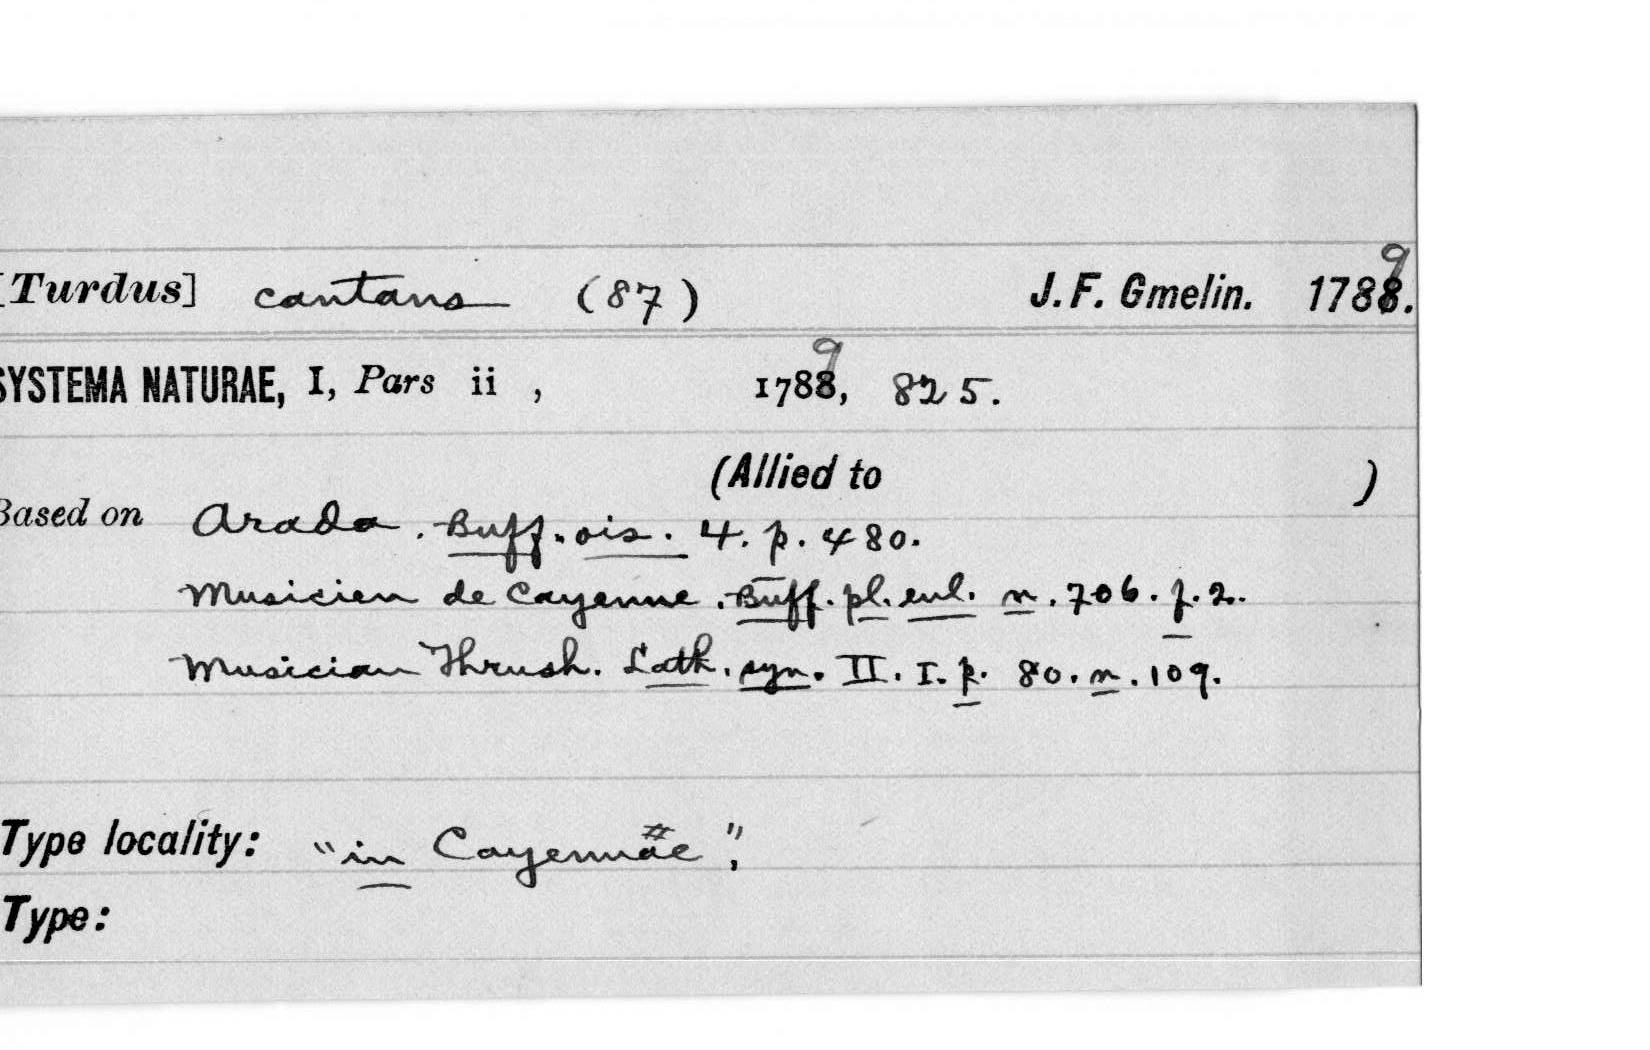 [Turdus] cantans (87) J. F. Gmelin. 1789.
SYSTEMA NATURAE, I, Pars ii , 1789, 825.
(Allied to )
Based on Arada . Buff. ois. 4. p. 480.
Musicien de Cayenne . Buff. pl. enl. n. 706. f. 2.
Musician Thrush. Lath. syn. II. I. p. 80. n. 109.
Type locality: "in Cayennae",
Type: